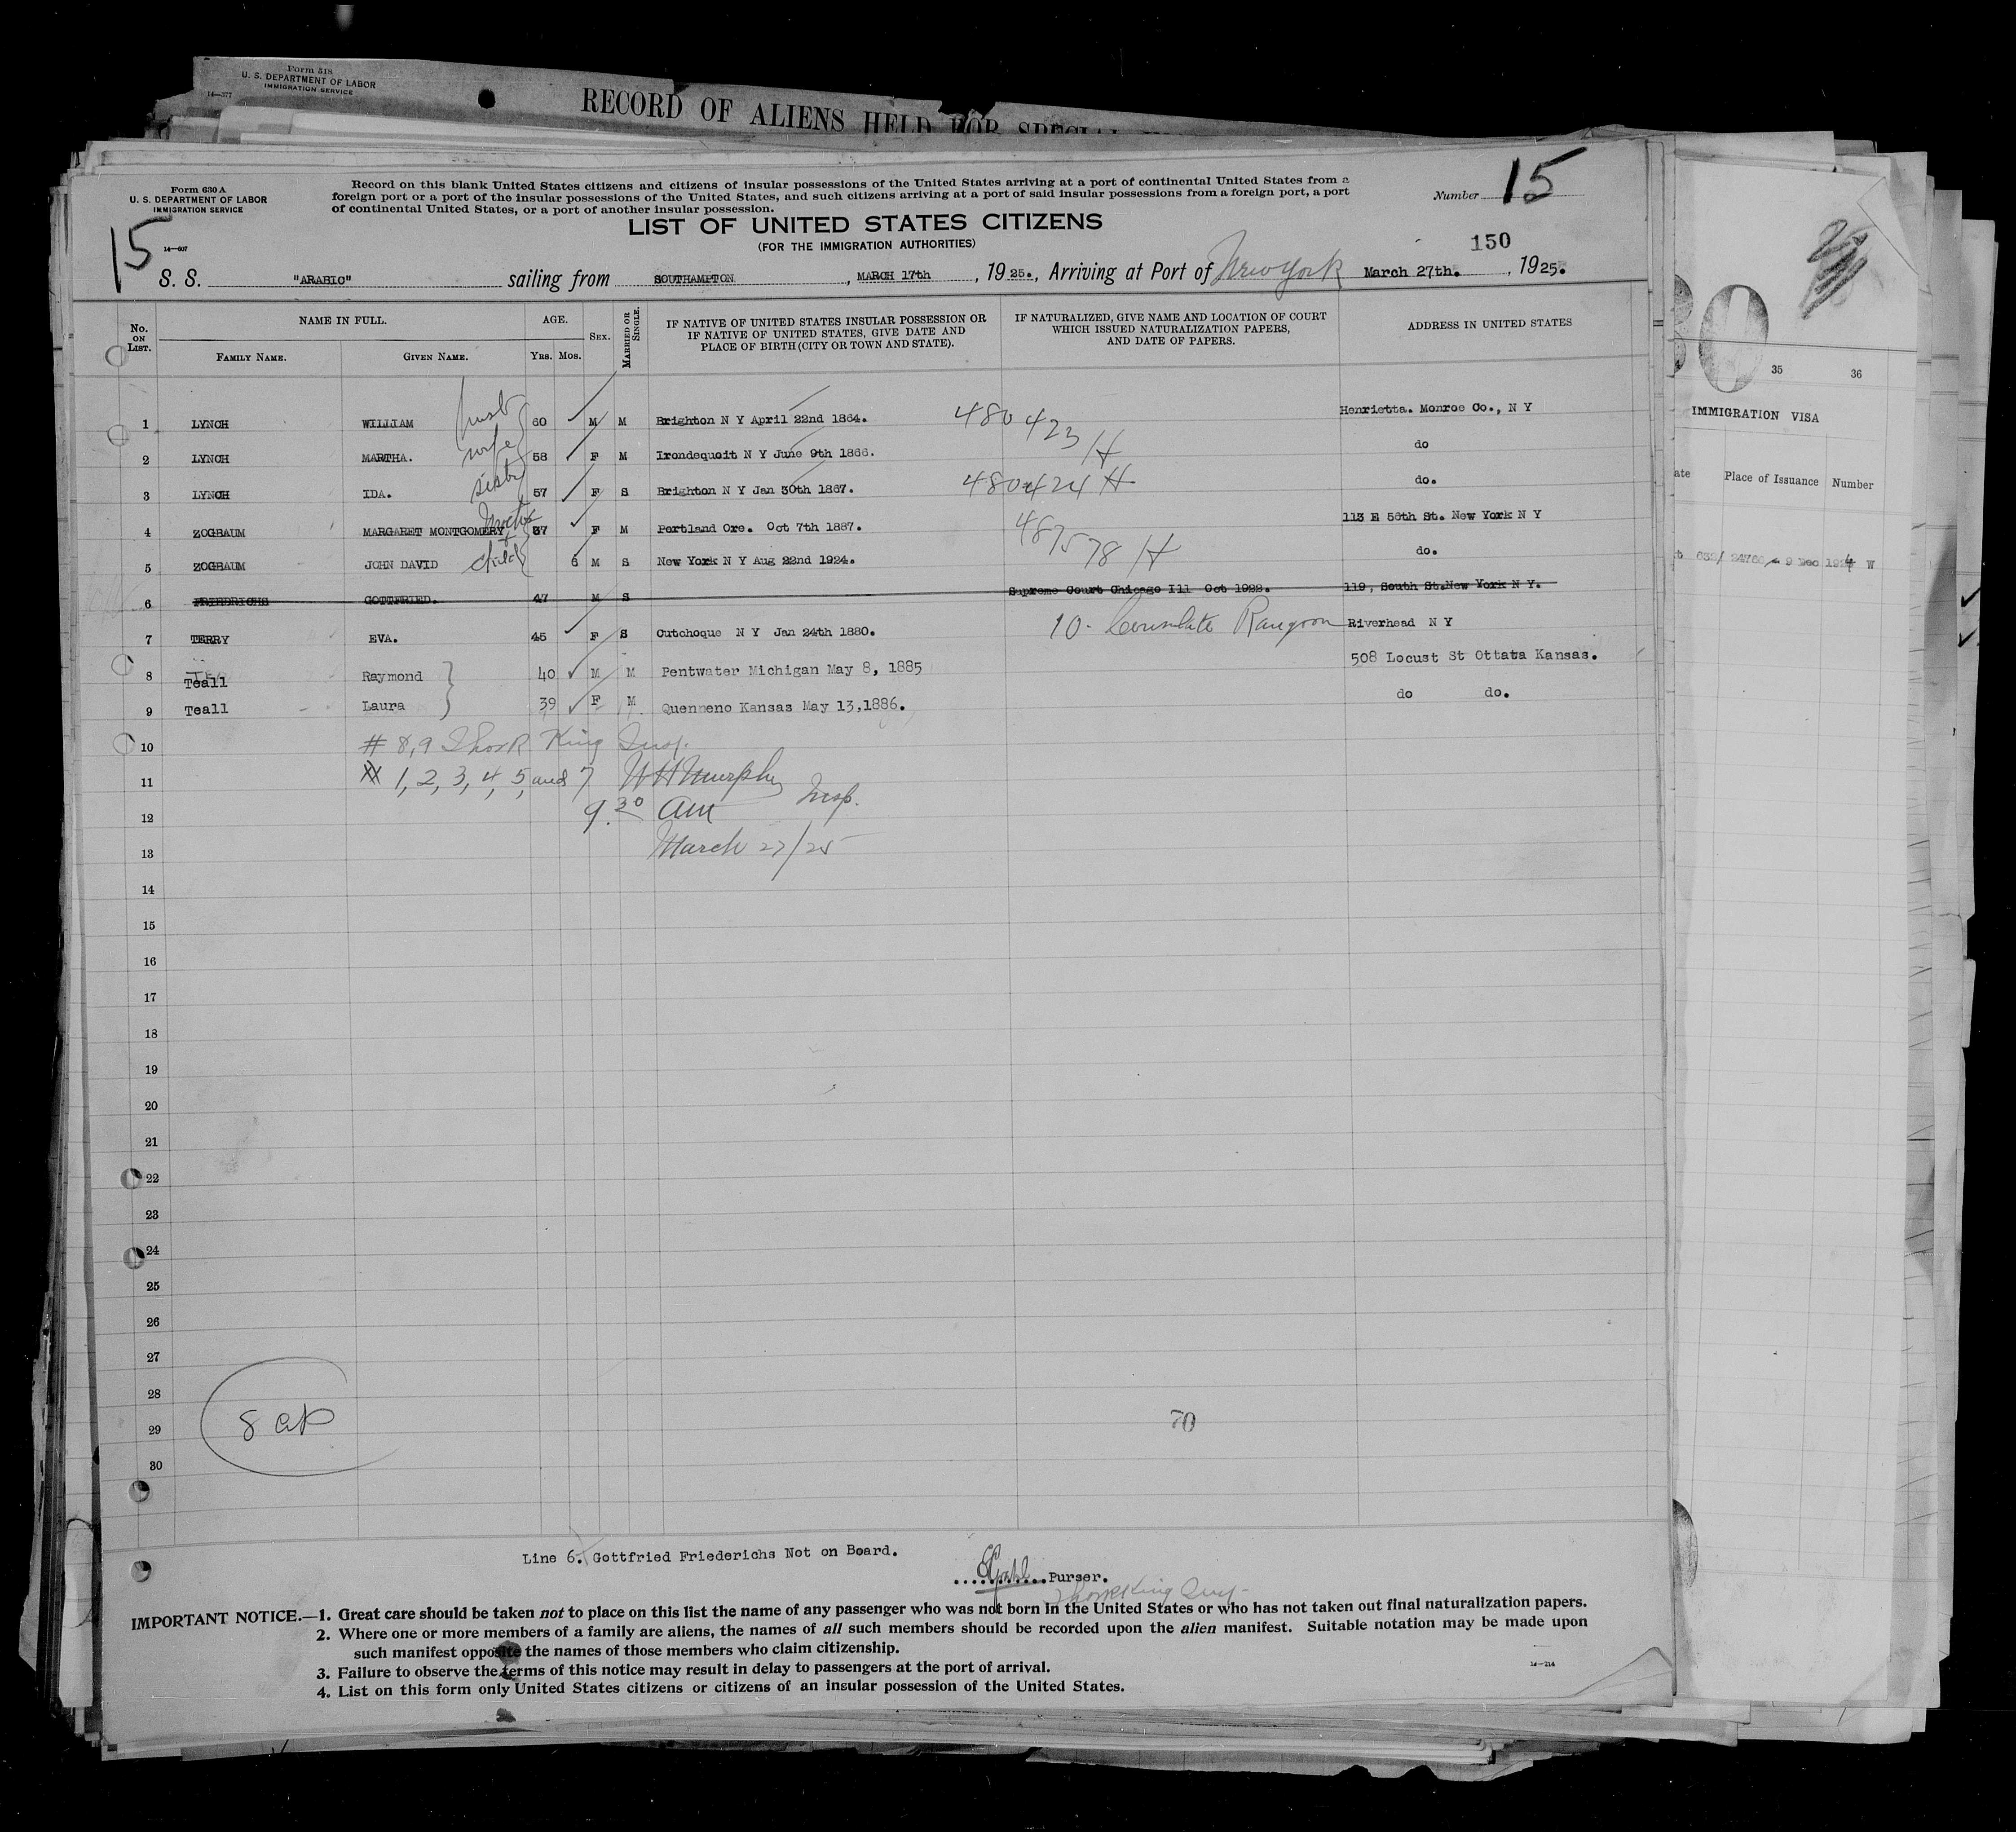 Form 518
U. S. DEPARTMENT OF LABOR
IMMIGRATION SERVICE
14—377
RECORD OF ALIENS HELD FOR SPECIAL
Form 630 A
U. S. DEPARTMENT OF LABOR
IMMIGRATION SERVICE
14—607
15
Record on this blank United States citizens and citizens of insular possessions of the United States arriving at a port of continental United States from a
foreign port or a port of the insular possessions of the United States, and such citizens arriving at a port of said insular possessions from a foreign port, a port
of continental United States, or a port of another insular possession.
Number 15
LIST OF UNITED STATES CITIZENS
(FOR THE IMMIGRATION AUTHORITIES)
150
S. S. "ARABIC" sailing from SOUTHAMPTON, MARCH 17th, 1925., Arriving at Port of New York March 27th., 1925.
No. ON LIST.
NAME IN FULL.
FAMILY NAME. GIVEN NAME.
AGE.
Yrs. Mos.
Sex.
MARRIED OR SINGLE.
IF NATIVE OF UNITED STATES INSULAR POSSESSION OR
IF NATIVE OF UNITED STATES, GIVE DATE AND
PLACE OF BIRTH (CITY OR TOWN AND STATE).
IF NATURALIZED, GIVE NAME AND LOCATION OF COURT
WHICH ISSUED NATURALIZATION PAPERS,
AND DATE OF PAPERS.
ADDRESS IN UNITED STATES
1 LYNCH WILLIAM husb 60 M M Brighton N Y April 22nd 1864. 480423 H Henrietta. Monroe Co., N Y
2 LYNCH MARTHA. wife 58 F M Irondequoit N Y June 9th 1866. do
3 LYNCH IDA. sister 57 F S Brighton N Y Jan 30th 1867. 480424 H do.
4 ZOGBAUM MARGARET MONTGOMERY Mother 37 F M Portland Ore. Oct 7th 1887. 487578 H 113 E 56th St. New York N Y
5 ZOGBAUM JOHN DAVID + child 6 M S New York N Y Aug 22nd 1924. do.
6 FRIEDRICHS GOTTFRIED. 47 M S Supreme Court Chicago Ill Oct 1922. 119, South St.New York N Y.
7 TERRY EVA. 45 F S Cutchoque N Y Jan 24th 1880. 10- Consulate Rangoon Riverhead N Y
8 Teall Raymond 40 M M Pentwater Michigan May 8, 1885 508 Locust St Ottata Kansas.
9 Teall Laura 39 F M Quenneno Kansas May 13,1886. do do.
10 # 8,9 King Insp.
11 1, 2, 3, 4, 5, and 7 WH Murphy Insp.
12 9.30 am
13 March 27/25
14
15
16
17
18
19
20
21
22
23
24
25
26
27
28
29 8 70
30
Line 6. Gottfried Friederichs Not on Board.
Purser.
King Insp
IMPORTANT NOTICE.—1. Great care should be taken not to place on this list the name of any passenger who was not born in the United States or who has not taken out final naturalization papers.
2. Where one or more members of a family are aliens, the names of all such members should be recorded upon the alien manifest. Suitable notation may be made upon
such manifest opposite the names of those members who claim citizenship.
3. Failure to observe the terms of this notice may result in delay to passengers at the port of arrival.
4. List on this form only United States citizens or citizens of an insular possession of the United States.
14—714
35 36
IMMIGRATION VISA
ate Place of Issuance Number
9 Dec 1924 W